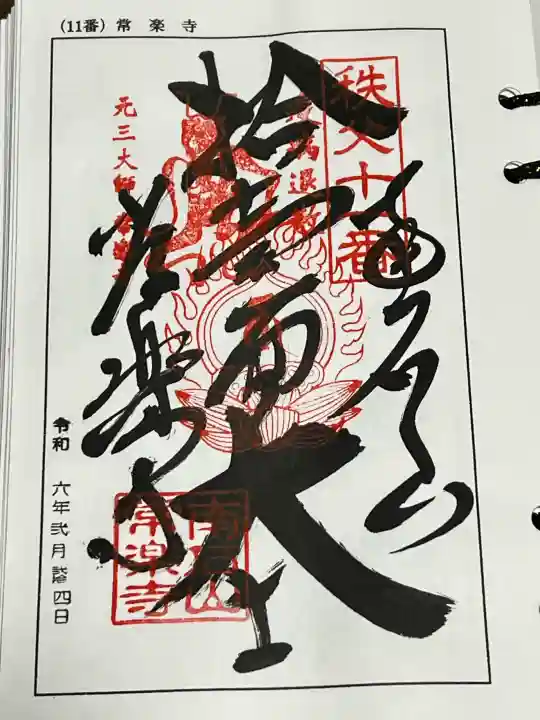 (11番) 常楽寺
秩父十一番
南石山
拾壹面大士
常楽寺
元三大師
南石山
常楽寺
令和 六年 弐月 廿四日